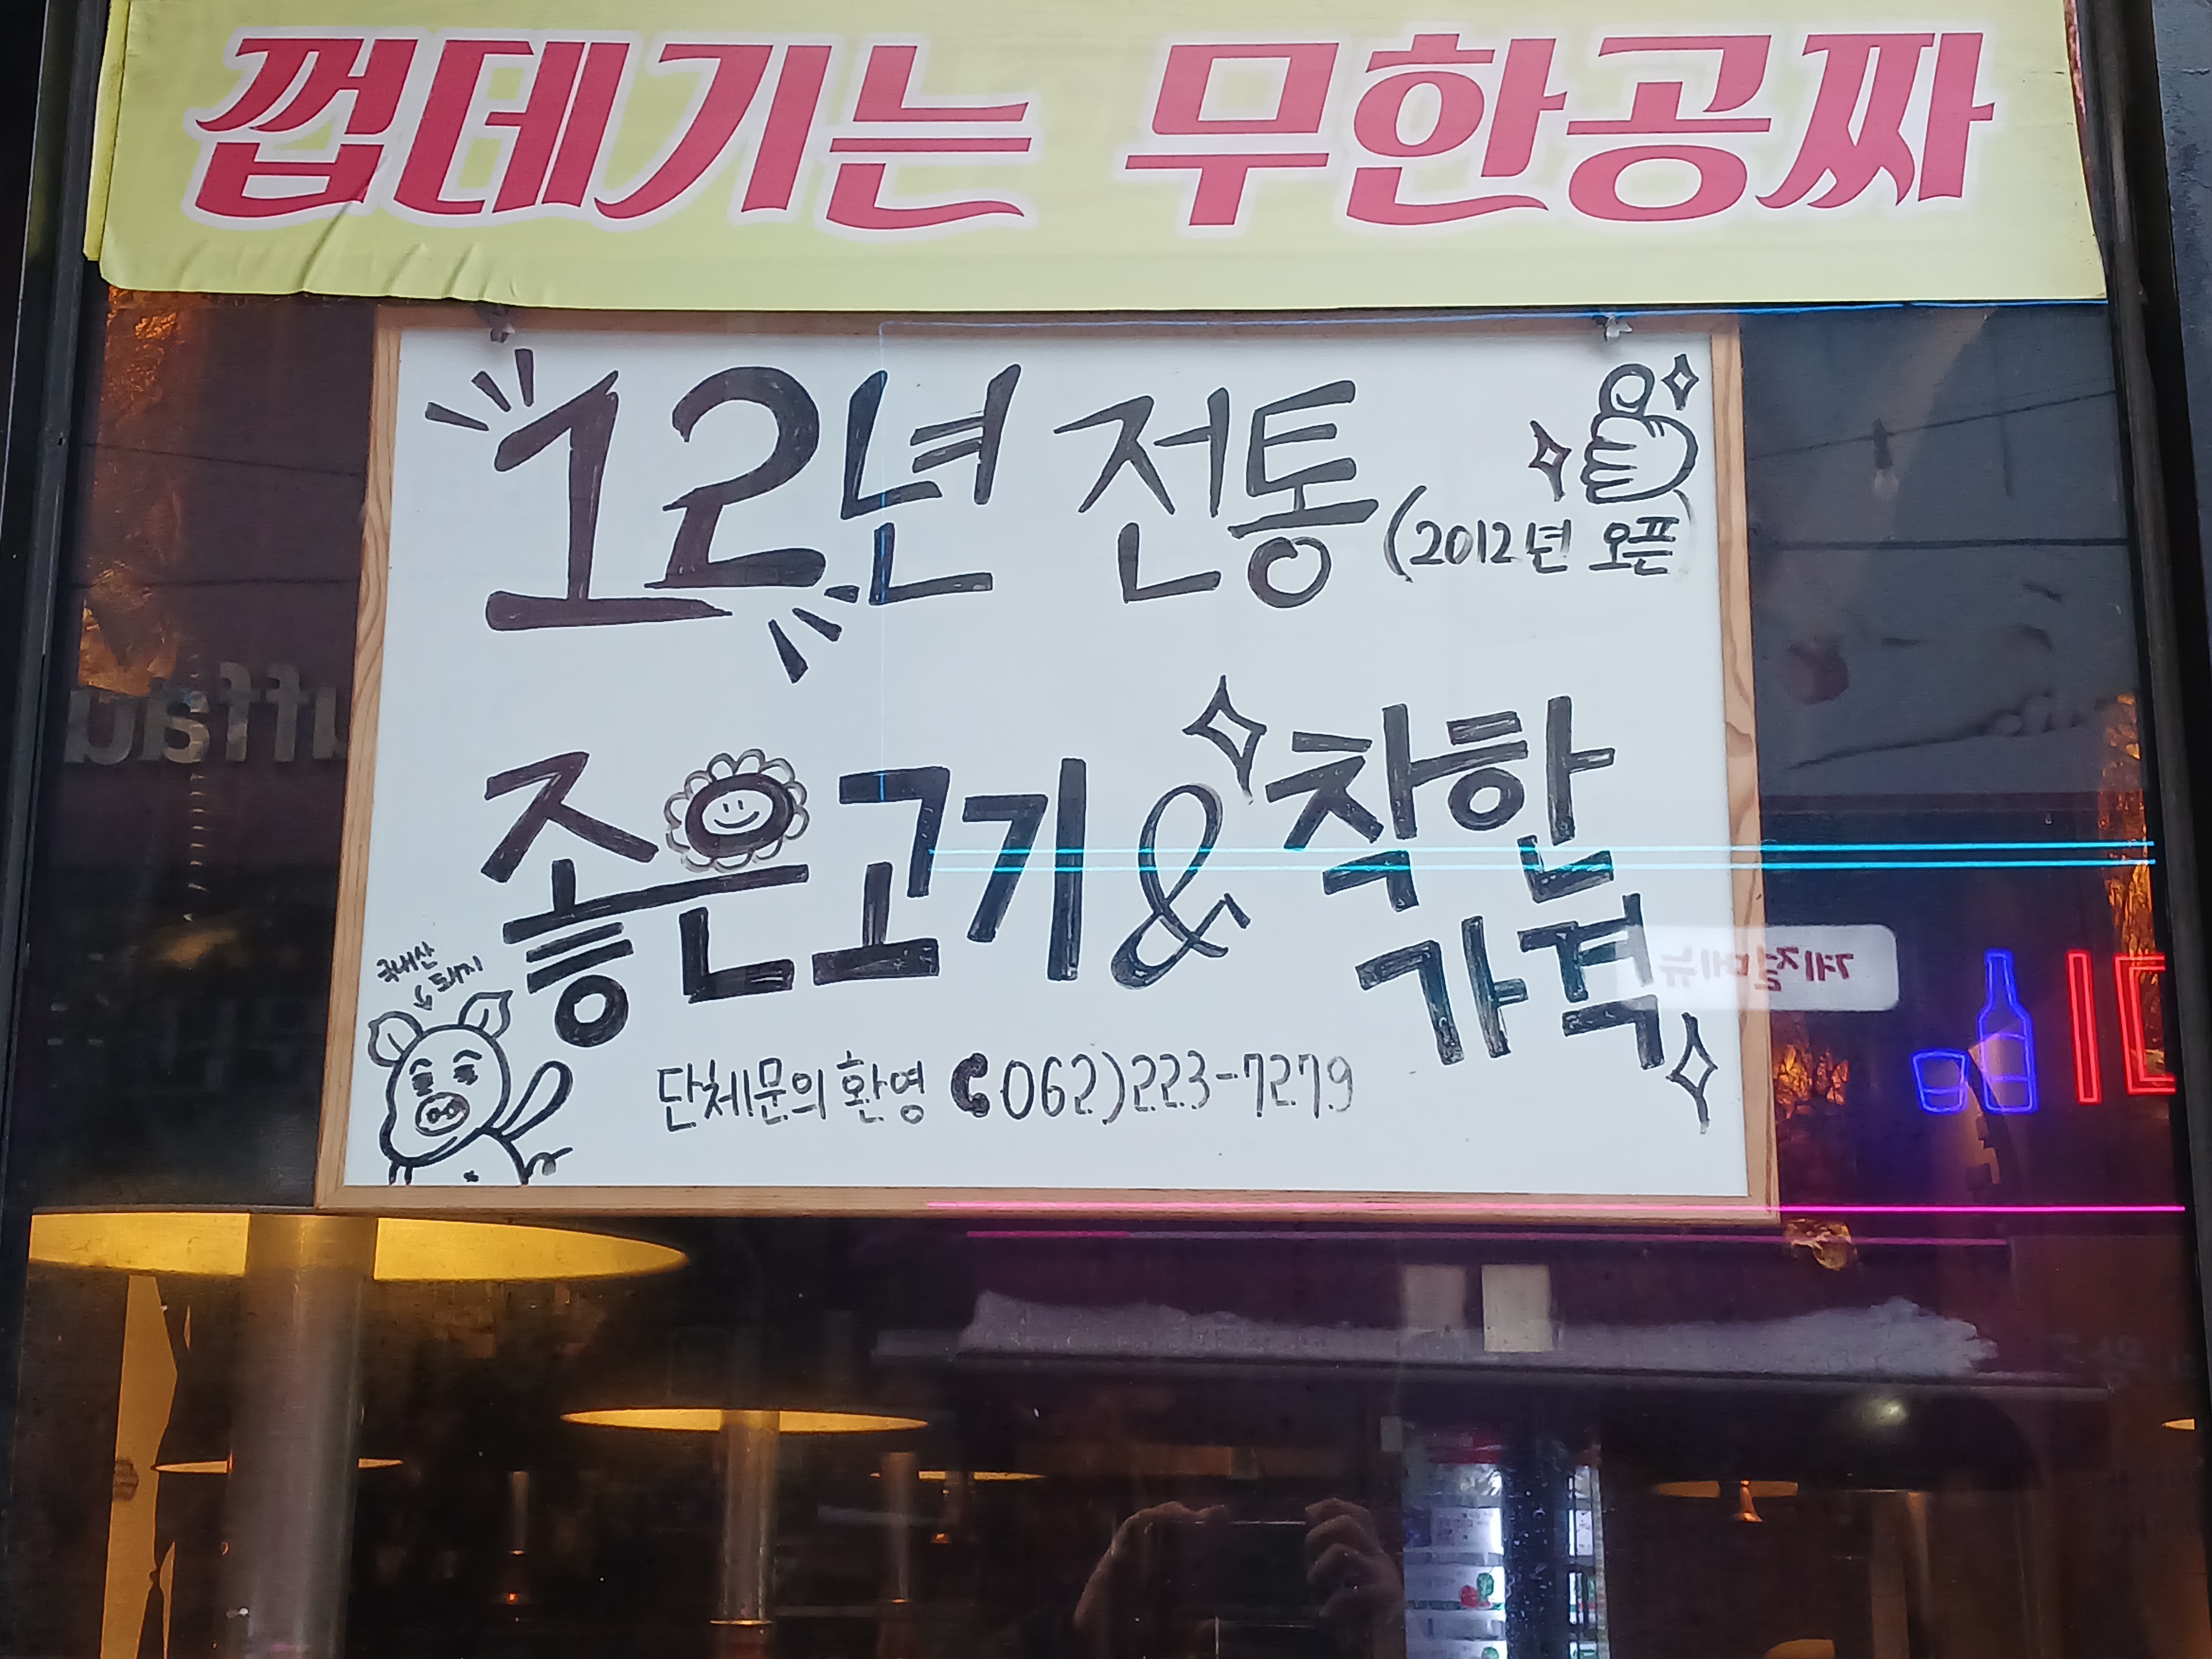 껍데기는 무한공짜
12년 전통
(2012년 오픈)
좋은고기 & 착한
가격
국내산
돼지
단체문의 환영 062)223-7279
계절메뉴